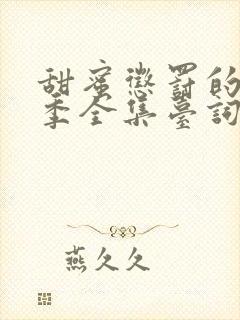 甜蜜懲罰的
季全集臺詞
燕久久